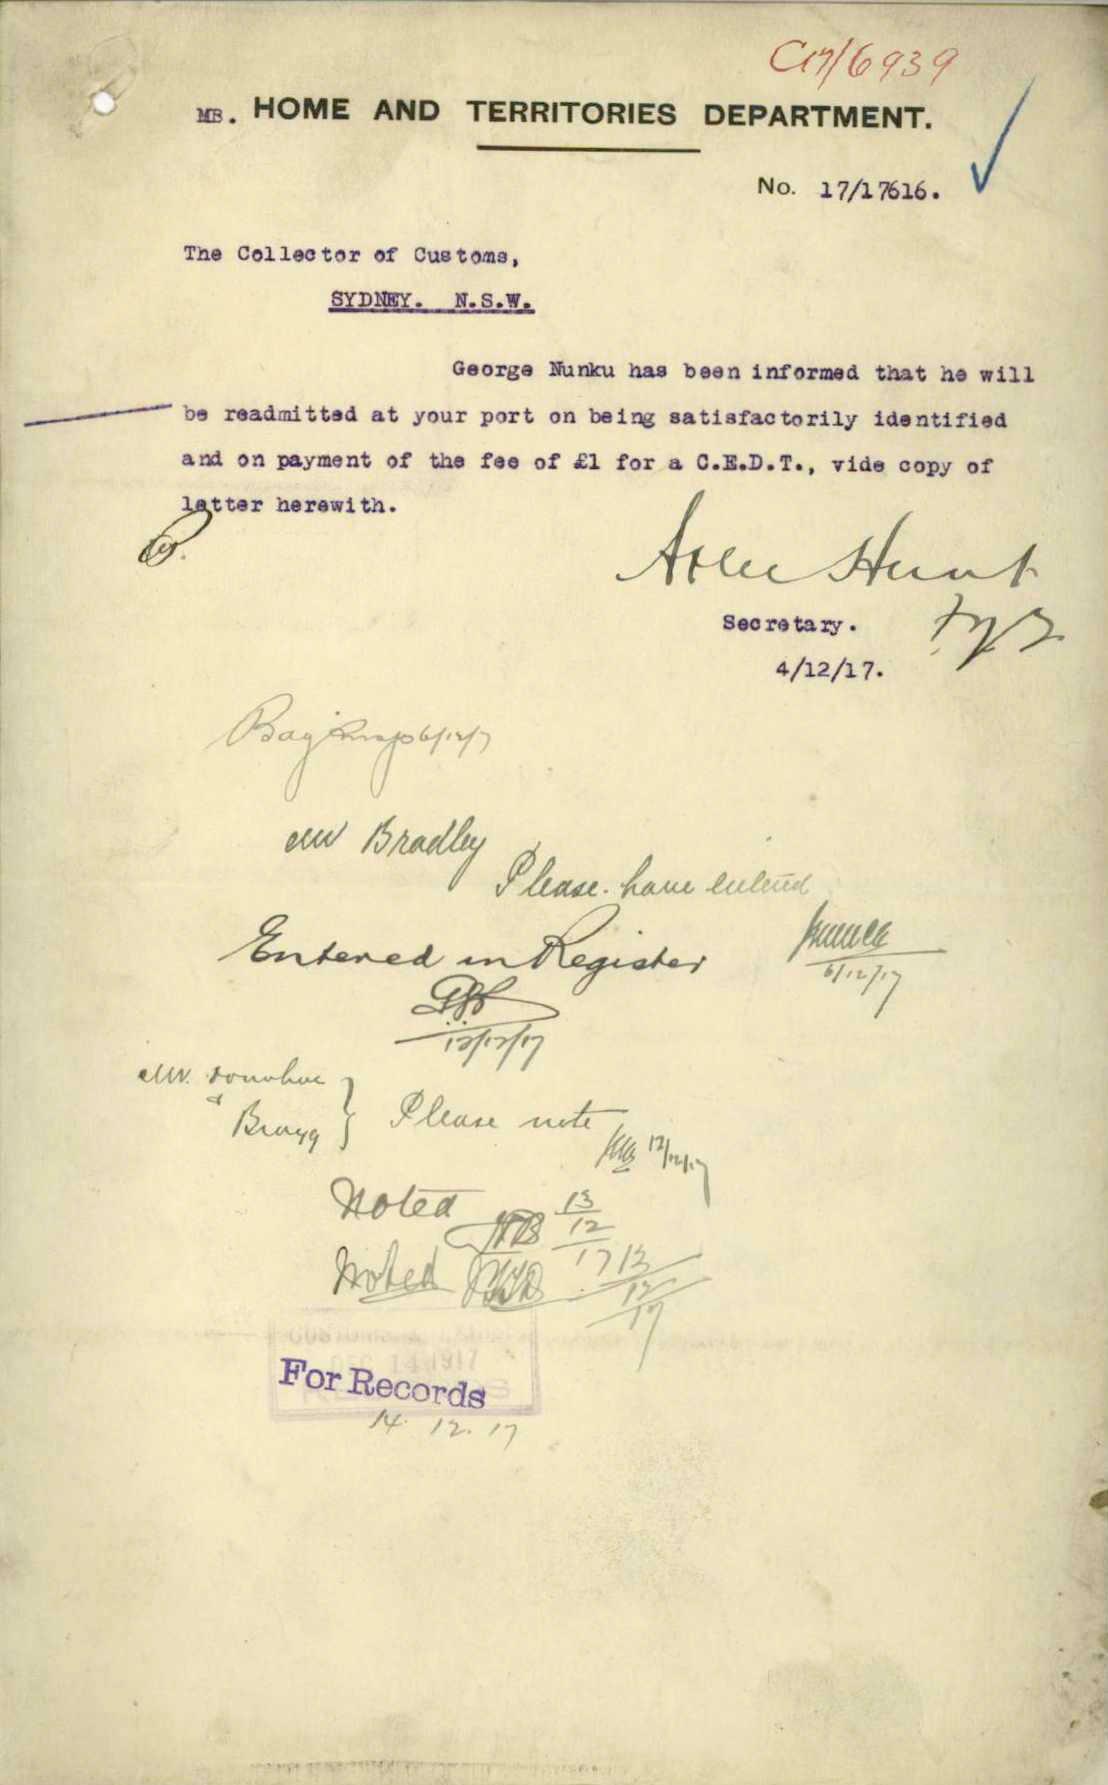 C17/6939
MB. HOME AND TERRITORIES DEPARTMENT.
No. 17/17616.
The Collector of Customs,
SYDNEY. N.S.W.
George Nunku has been informed that he will
be readmitted at your port on being satisfactorily identified
and on payment of the fee of £1 for a C.E.D.T., vide copy of
letter herewith.
Atlee Hunt
Secretary.
4/12/17.
6/12/17
Mr Bradley
Please have entered
6/12/17
Entered in Register
12/12/17
Mr. Donohue
& Bragg } Please note
12/12/17
Noted 13/12/17
Noted 13/12/17
DEC 14 1917
For Records
14.12.17